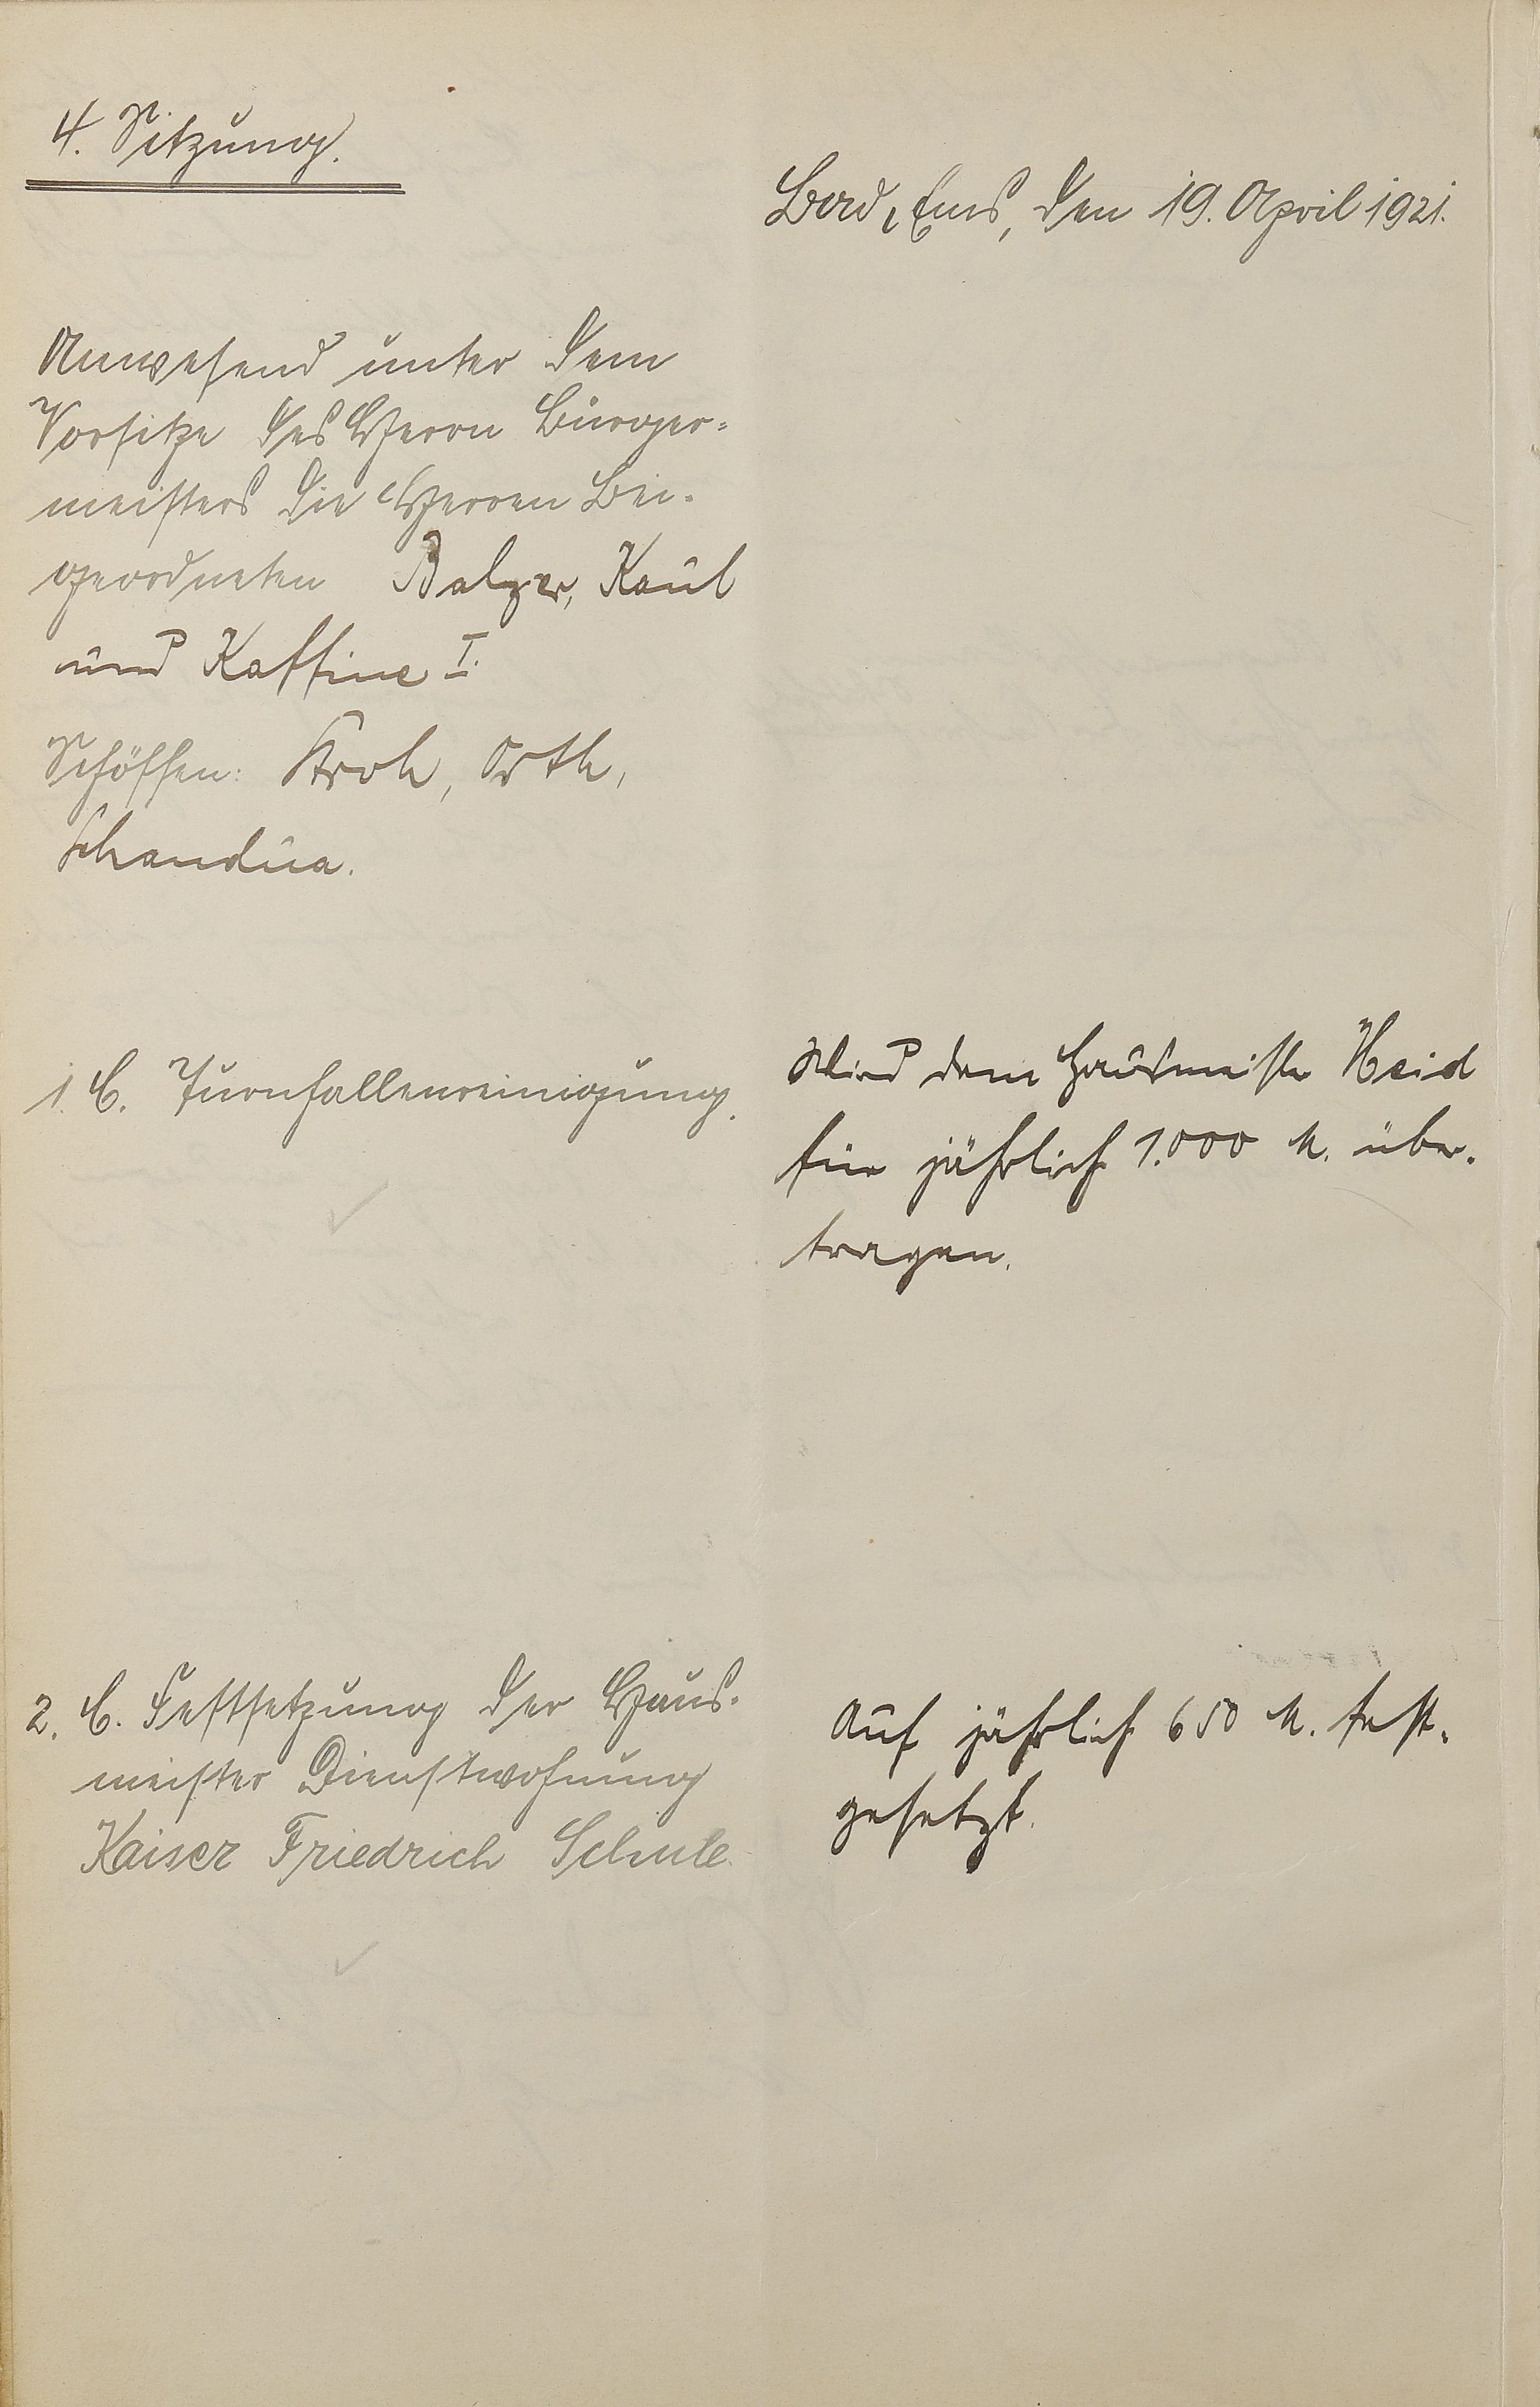 4. Sitzung.
Bad Ems, den 19. April 1921.
Anwesend unter dem
Vorsitze des Herrn Bürger-
meisters die Herren Bei-
geordneten Balzer, Kaul
und Kaffine I.
Schöffen: Kroh, Orth,
Schandua.
1. C. Turnhallenreinigung.
Wird dem Hausmeister Heid
für jährlich 1.000 M. über-
tragen.
2. C. Festsetzung der Haus-
meister Dienstwohnung
Kaiser Friedrich Schule.
Auf jährlich 650 M. fest-
gesetzt.